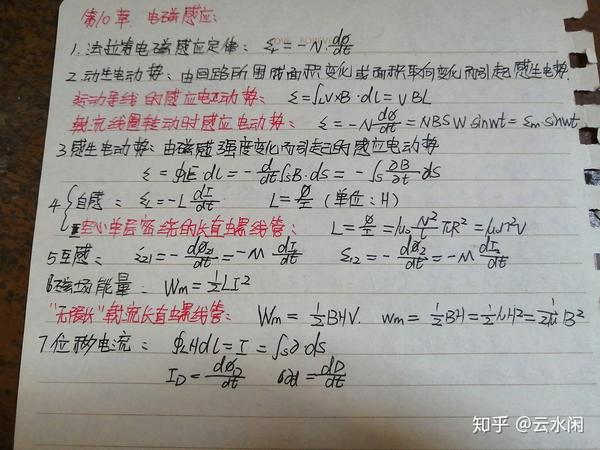 第10章 电磁感应:
1.法拉第电磁感应定律: ε_i = -N·dΦ/dt
2.动生电动势:由回路所围成面积变化或面积取向变化而引起感生电势.
运动导线的感应电动势: ε=∫_L v×B·dL=VBL
载流线圈转动时感应电动势: ε=-N dΦ/dt=NBSW sinwt=ε_m·sinwt
3感生电动势:由磁感强度变化而引起的感应电动势
ε=∮E·dL=-d/dt∫_S B·dS=-∫_S ∂B/∂t dS
4 自感: ε_L=-L dI/dt L=Φ/I (单位:H)
空心单层密绕的长直螺线管: L=Φ/I=μ₀ N²/l πR²=μn²V
5互感: ε21=-dΦ21/dt=-M dI/dt ε12=-dΦ2/dt=-M dI/dt
6磁场能量: Wm=½LI²
"无限长"载流长直螺线管: Wm=½BHV. wm=½BH=½μH²=1/2μ B²
7位移电流: ∮_L HdL=I=∫_S ∂·dS
I_D=dΦ_D/dt dD/dt
知乎 @云水闲